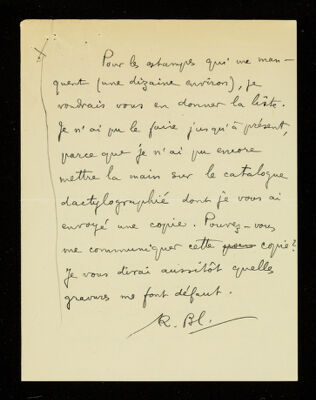 Pour les estampes qui me man-
quent (une dizaine environ), je
voudrais vous en donner la liste.
Je n'ai pu le faire jusqu'à présent,
parce que je n'ai pu encore
mettre la main sur le catalogue
dactylographié dont je vous ai
envoyé une copie. Pouvez-vous
me communiquer cette copie?
Je vous dirai aussitôt quelles
gravures me font défaut.
R. Bl.